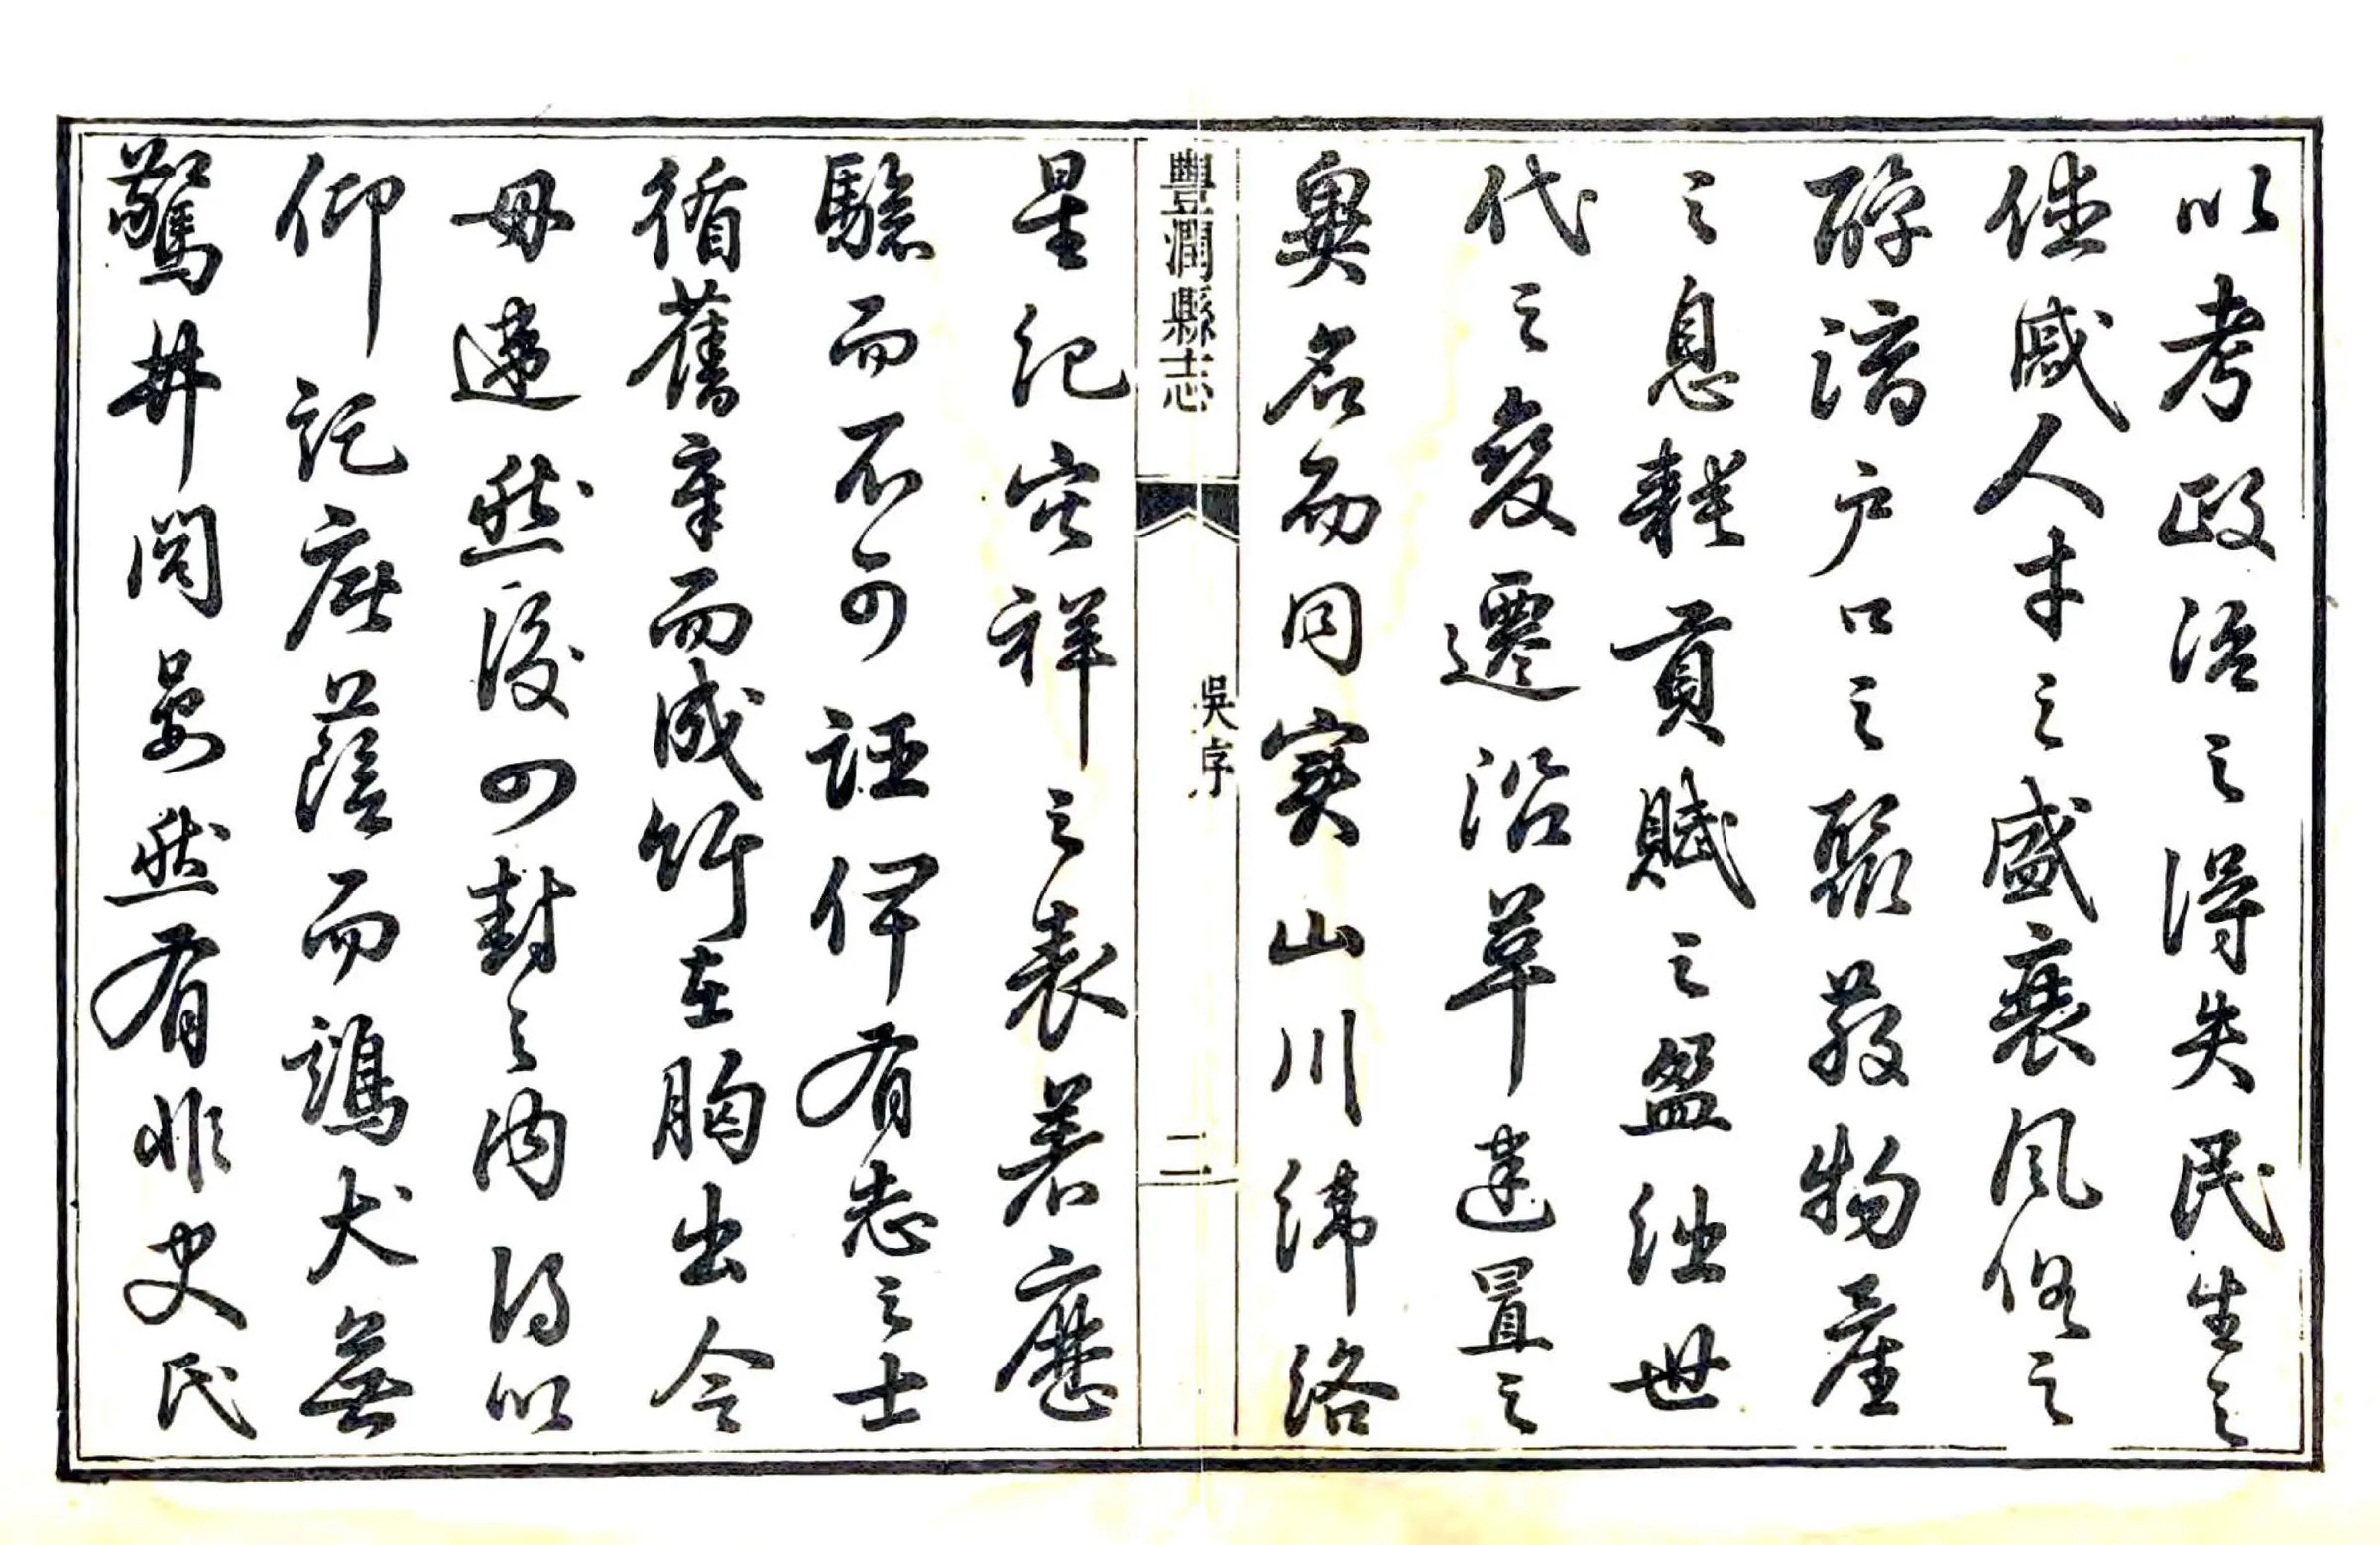 以考政治之得失民生之
休戚人才之盛衰風俗之
醇漓户口之聚散物產
之息耗貢賦之盈絀世
代之變遷沿革建置之
異名而同實山川緯絡
豐潤縣志
吳序
二
星紀灾祥之表著歷
驗而不可誣俾有志之士
循舊章而成竹在胸出令
毋違然後四封之内得以
仰託庇蔭而鷄犬無
驚井閭晏然有非吏民